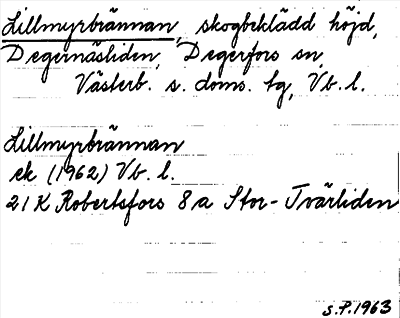 Lillmyrbrännan, skogbeklädd höjd,
Degernäsliden, Degerfors sn,
Västerb. s. doms. tg, Vb. l.
Lillmyrbrännan
ek (1962) Vb. l.
21 K Robertsfors 8 a Stor-Tvärliden
S.P. 1963